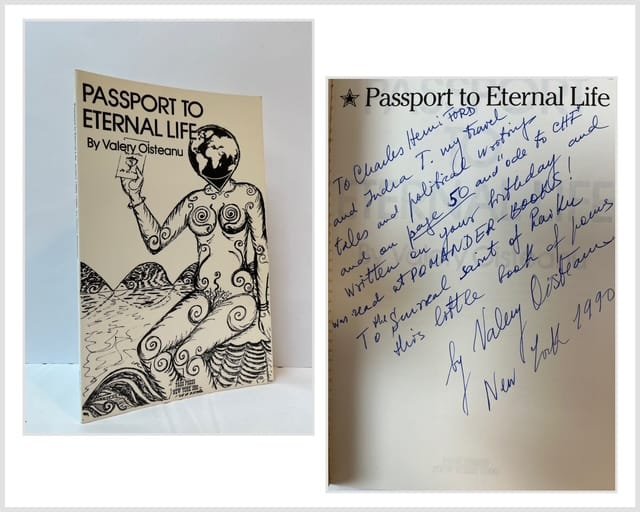 PASSPORT TO
ETERNAL LIFE
By Valery Oisteanu
PASS PRESS
NEW YORK
★ Passport to Eternal Life
To Charles Henri FORD
and Indra T. my travel
tales and political writing
and on page 50 and "ode to CHF
written on your birthday and
was read at POMANDER BOOKS!
To the Surreal saint of
this little book of poems
by Valery Oisteanu
New York 1990